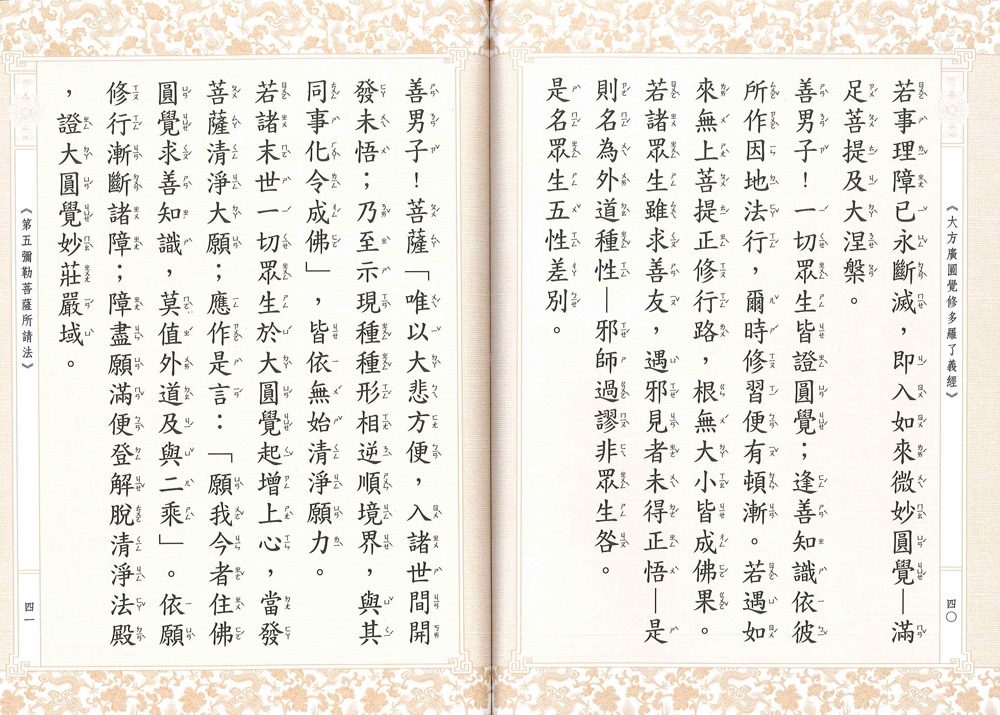 《大方廣圓覺修多羅了義經》
四〇
若事理障已永斷滅，即入如來微妙圓覺—滿
足菩提及大涅槃。
善男子！一切眾生皆證圓覺；逢善知識依彼
所作因地法行，爾時修習便有頓漸。若遇如
來無上菩提正修行路，根無大小皆成佛果。
若諸眾生雖求善友，遇邪見者未得正悟—是
則名為外道種性—邪師過謬非眾生咎。
是名眾生五性差別。
善男子！菩薩「唯以大悲方便，入諸世間開
發未悟；乃至示現種種形相逆順境界，與其
同事化令成佛」，皆依無始清淨願力。
若諸末世一切眾生於大圓覺起增上心，當發
菩薩清淨大願；應作是言：「願我今者住佛
圓覺求善知識，莫值外道及與二乘」。依願
修行漸斷諸障；障盡願滿便登解脫清淨法殿
，證大圓覺妙莊嚴域。
《第五彌勒菩薩所請法》
四一